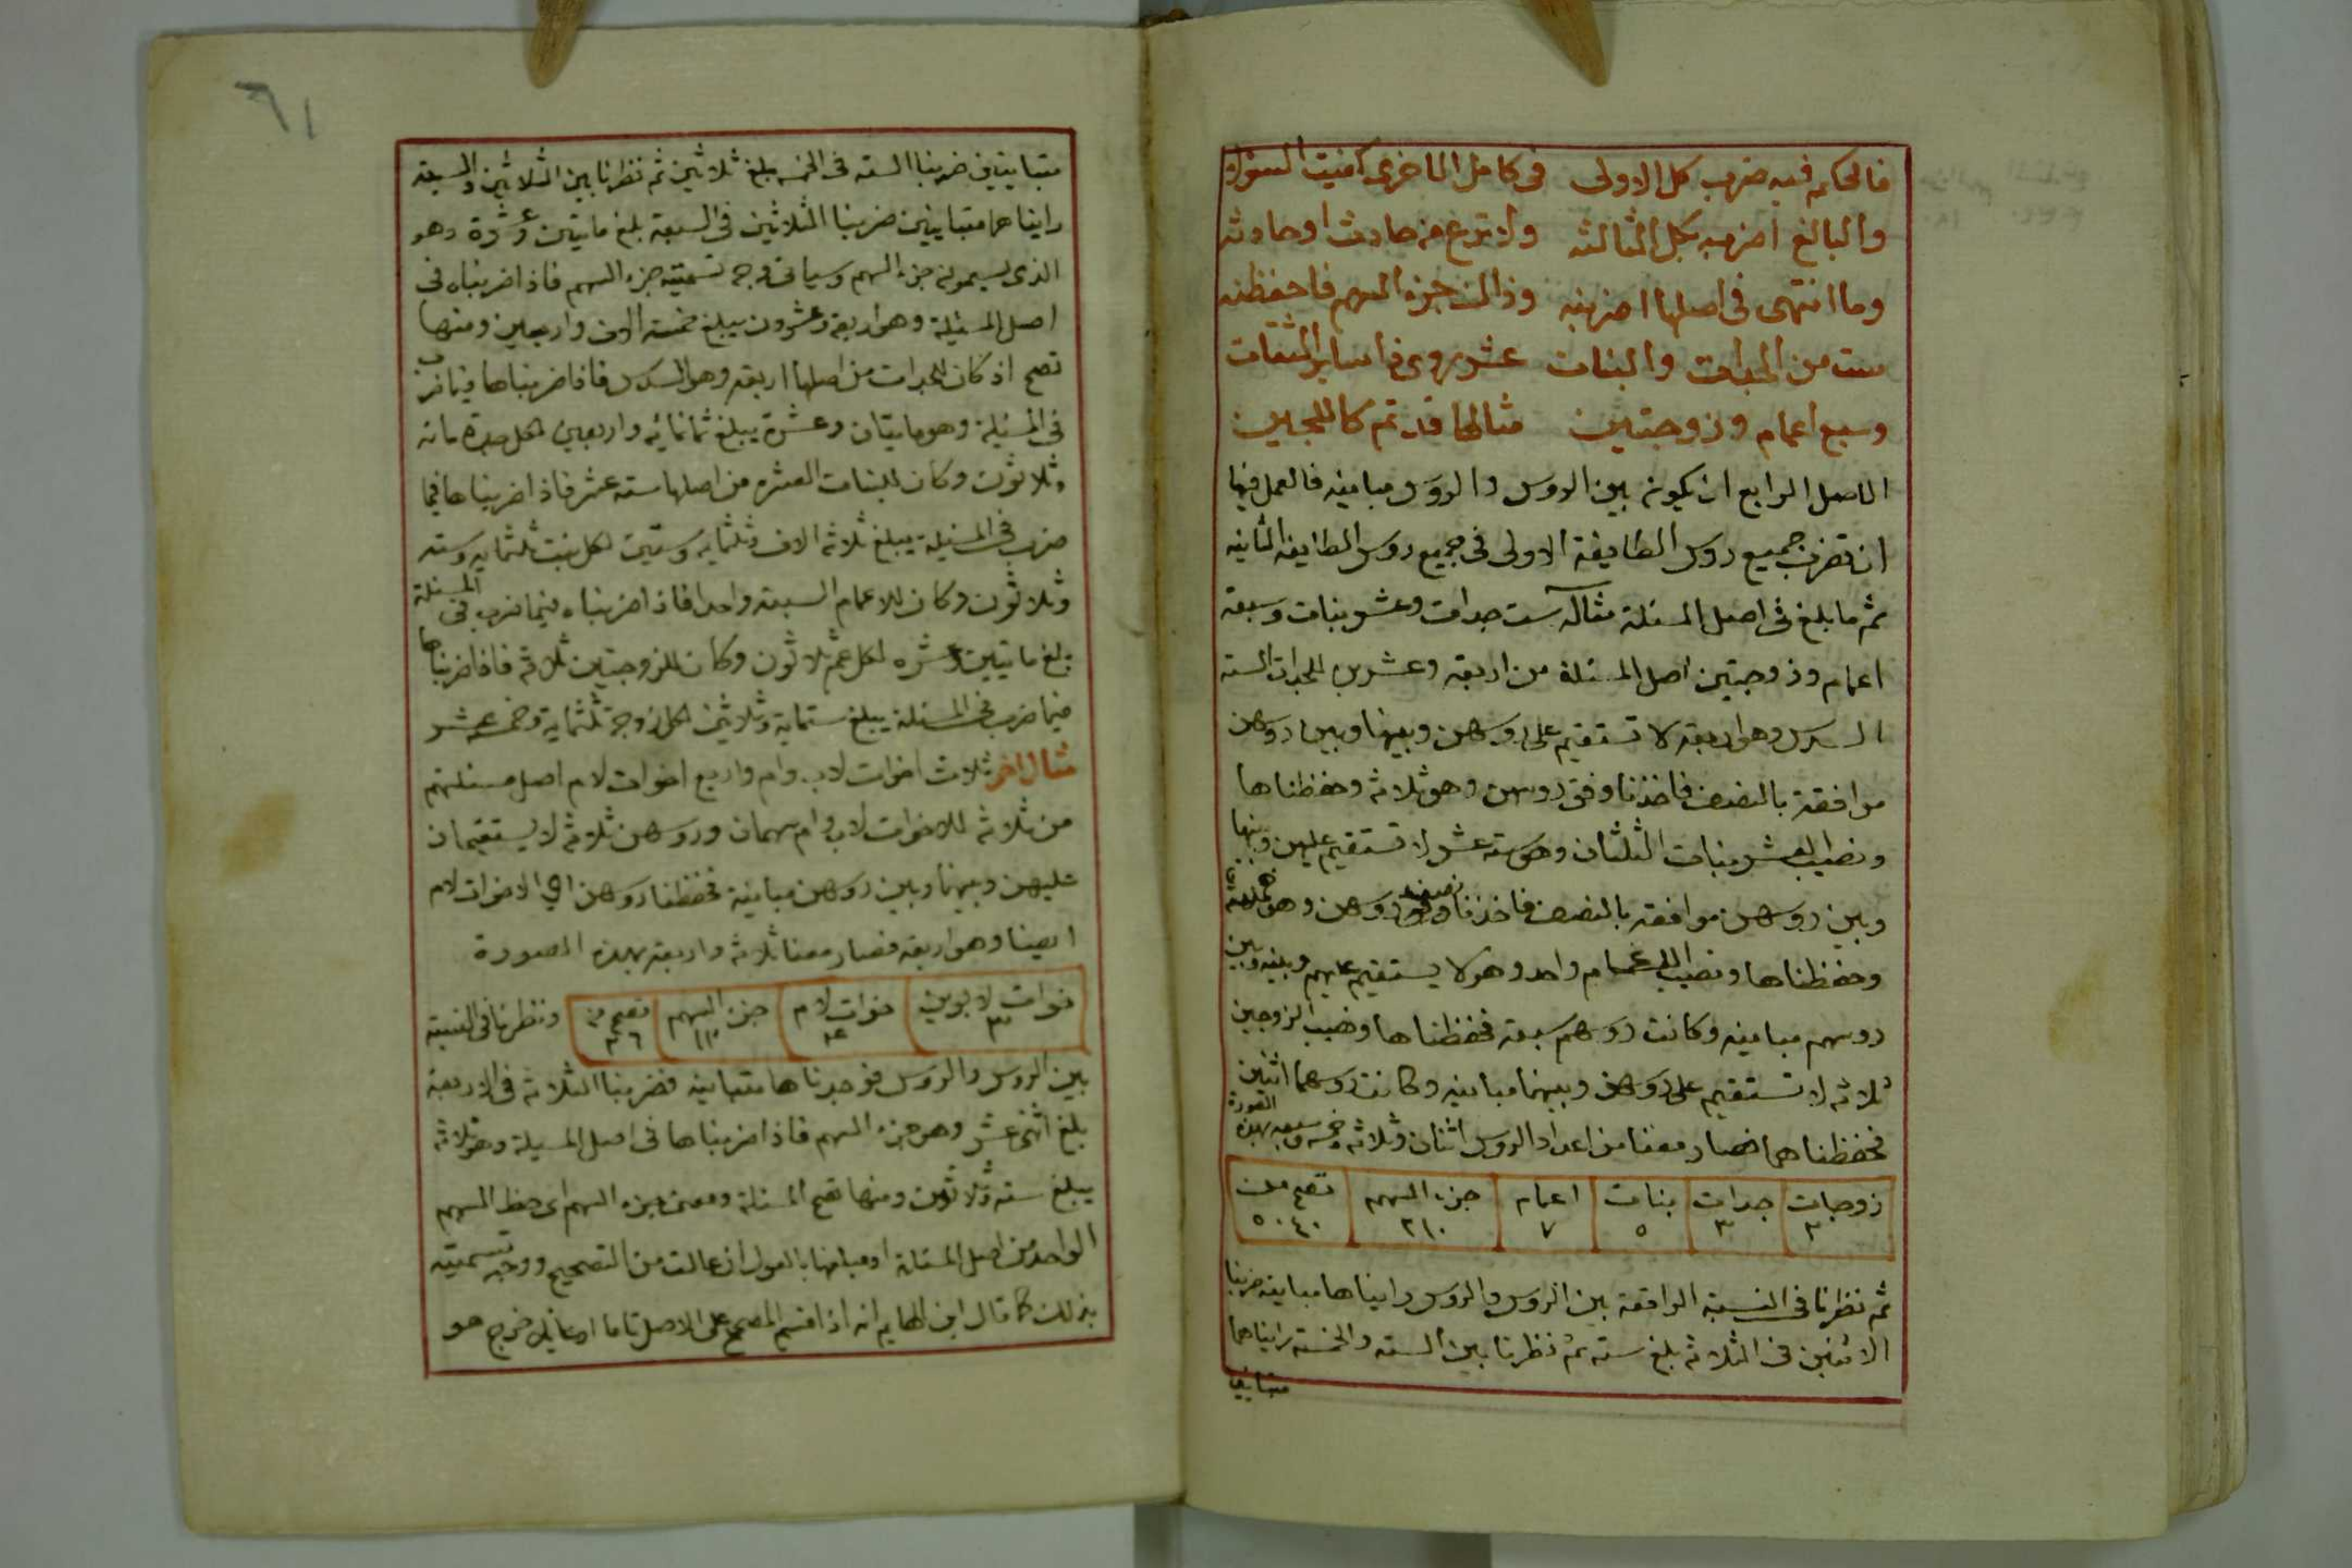 فالحكم فيه ضرب كل الاولى في كامل الاخرى كفيت السؤلا
والبالغ اضربه بكل الثالثه ولا ترع من حادث او حادثه
وما انتهى في اصلها اضربنه وذالك جزء السهم فاحفظنه
ست من الجدات والبنات عشر روى ذا ساير الثقات
وسبع اعمام وزوجتين مثالها قد تم كاللجين
الاصل الرابع ان يكون بين الروس والروس مباينه فالعمل فيها
ان تضرب جميع روس الطايفة الاولى في جميع روس الطايفه الثانيه
ثم ما بلغ في اصل المسئلة مثاله ست جدات وعشر بنات وسبعة
اعمام وزوجتين اصل المسئلة من اربعه وعشرين للجدات السته
السدس وهو اربعه لا تستقيم على روسهن وبينها وبين روسهن
موافقة بالنصف فاخذنا وفق روسهن وهو ثلاثه وحفظناها
ونصيب العشر بنات الثلثان وهو سته عشر لا تستقيم عليهن وبينها
وبين روسهن موافقه بالنصف فاخذنا نصف روسهن وهو خمسة
وحفظناها ونصيب الاعمام واحد وهو لا يستقيم عليهم وبينه وبين
روسهم مباينه وكانت روسهم سبعه فحفظناها ونصيب الزوجتين
ثلاثه لا تستقيم على روسهن وبينهما مباينه وكانت روسهما اثنين
فحفظناهما فصار معنا من اعداد الروس اثنان وثلاثه وخمسه وسبعه بهذه الصورة
زوجات ٢ جدات ٣ بنات ٥ اعمام ٧ جزء السهم ٢١٠ تصح من ٥٠٤٠
ثم نظرنا في النسبة الواقعة بين الروس والروس رايناها مباينه ضربنا
الاثنين في الثلاثه بلغ سته ثم نظرنا بين السته والخمسه رايناهما
متباينين
٦١
متباينين ضربنا السته في الخمسه يبلغ ثلاثين ثم نظرنا بين الثلاثين والسبعة
رايناهما متباينين ضربنا الثلاثين في السبعة بلغ مايتين وعشرة وهو
الذي يسمونه جزء السهم وسياتي وجه تسميته جزء السهم فاذا ضربناه في
اصل المسئيلة وهو اربعة وعشرون يبلغ خمسة الاف واربعين ومنها
تصح اذ كان للجدات من اصلها اربعه وهو السدس فاذا ضربناها فيما ضرب
في المسئيلة وهو مايتان وعشرة يبلغ ثمانمائه واربعين لكل جدة مائه
وثلاثون وكان للبنات العشره من اصلها سته عشر فاذا ضربناها فيما
ضرب في المسئيلة يبلغ ثلاثه الاف وثلثمايه وستين لكل بنت ثلثمايه وسته
وثلاثون وكان للاعمام السبعه واحد فاذا ضربناه فيما ضرب في المسئلة
بلغ مايتين وعشره لكل عم ثلاثون وكان للزوجتين ثلاثه فاذا ضربناها
فيما ضرب في المسئلة يبلغ ستماية وثلاثين لكل زوجة ثلثماية وخمسه عشر
مثال اخر ثلاث اخوات لاب وام واربع اخوات لام اصل مسئلتهم
من ثلاثه للاخوات لاب وام سهمان وروسهن ثلاثه لا يستقيمان
عليهن وبينهما وبين روسهن مباينة فحفظنا روسهن الاخوات لام
ايضا وهو اربعه فصار معنا ثلاثه واربعه بهذه الصورة
خوات لابوين ٣ خوات لام ٤ جزء السهم ١٢ تصح من ٣٦ ونظرنا في النسبة
بين الروس والروس فوجدناها متباينه فضربنا الثلاثه في الاربعة
بلغ اثنى عشر وهو جزء السهم فاذا ضربناها في اصل المسيلة وهو ثلاثه
يبلغ سته وثلاثون ومنها تصح المسئلة ومعنى جزء السهم اى حظ السهم
الواحد من اصل المسئلة او مبلغها بالعول ان عالت من التصحيح ووجه تسميته
بذلك كما قال ابن الهايم انه اذا قسم المصحح على الاصل تاما او عايلا خرج هو